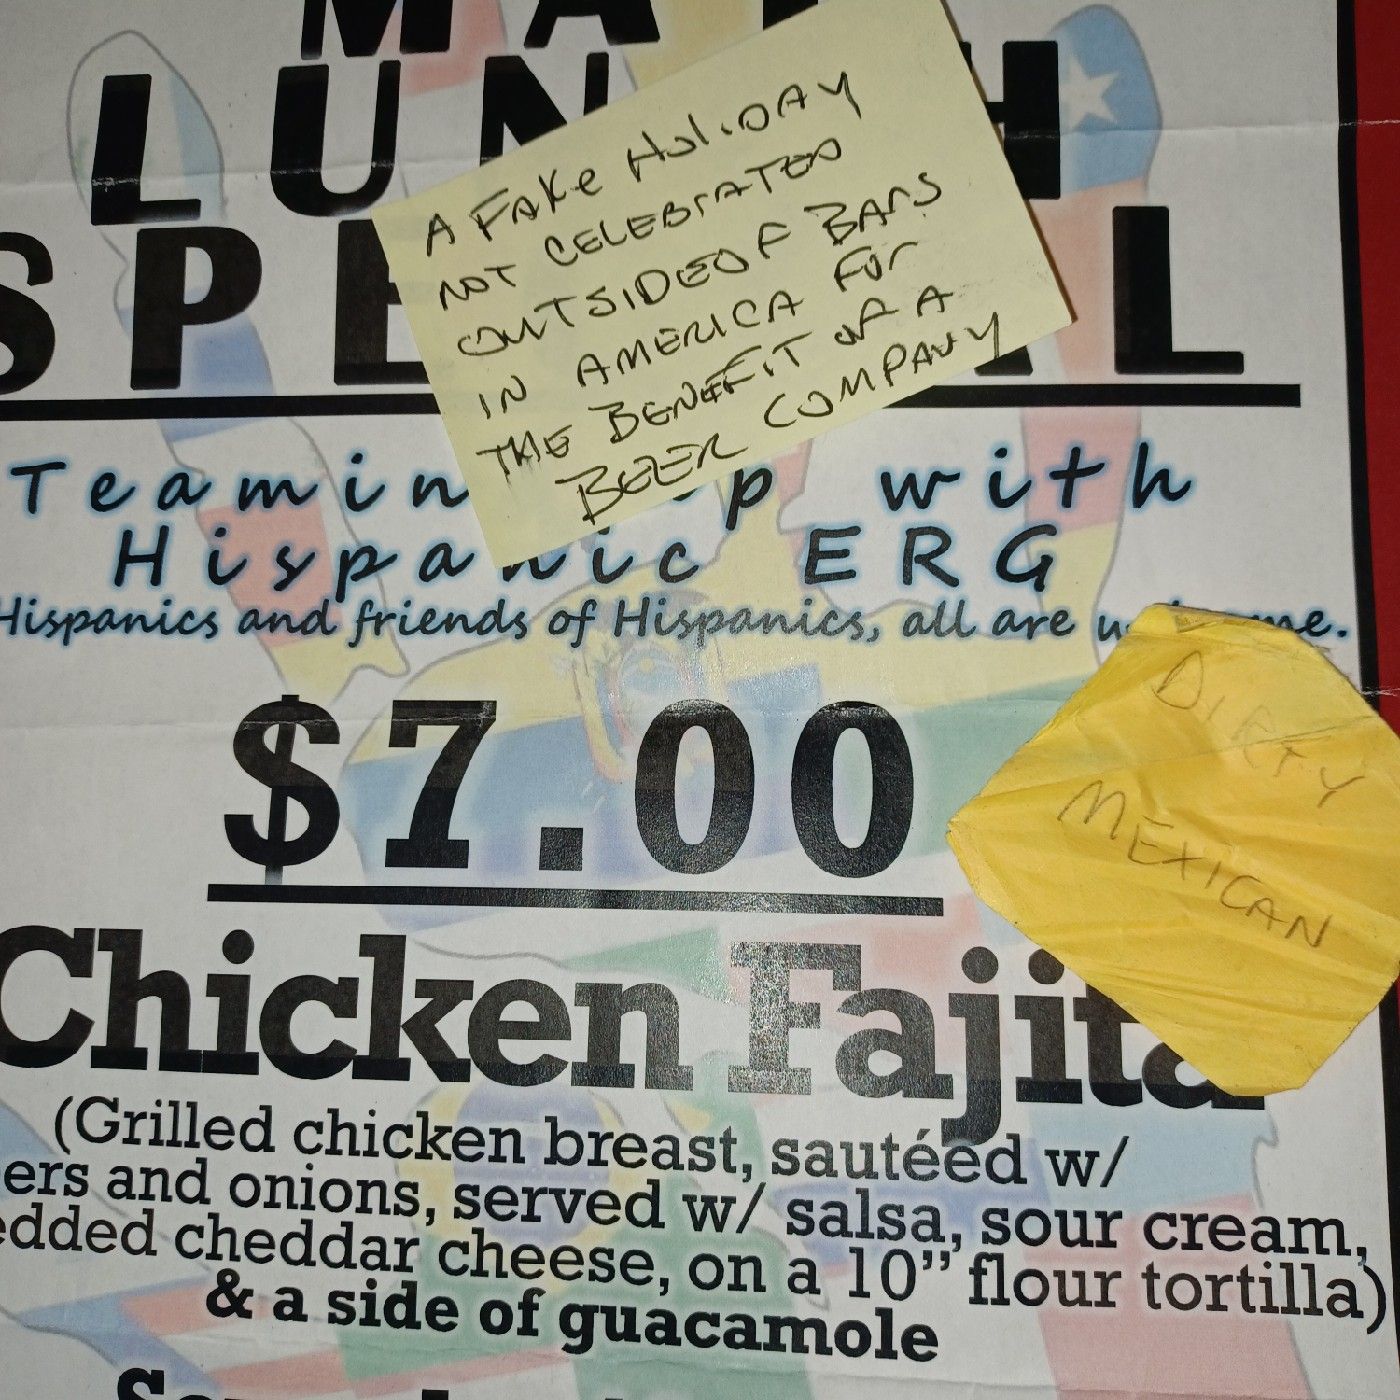 MAY
LUN H
SPE IAL
A FAKE HOLIDAY
NOT CELEBRATED
OUTSIDE OF BARS
IN AMERICA FOR
THE BENEFIT OF A
BEER COMPANY
Teamin p with
Hispanic ERG
Hispanics and friends of Hispanics, all are me.
$7.00
DIRTY
MEXICAN
Chicken Fajita
(Grilled chicken breast, sautéed w/
ers and onions, served w/ salsa, sour cream,
edded cheddar cheese, on a 10" flour tortilla)
& a side of guacamole